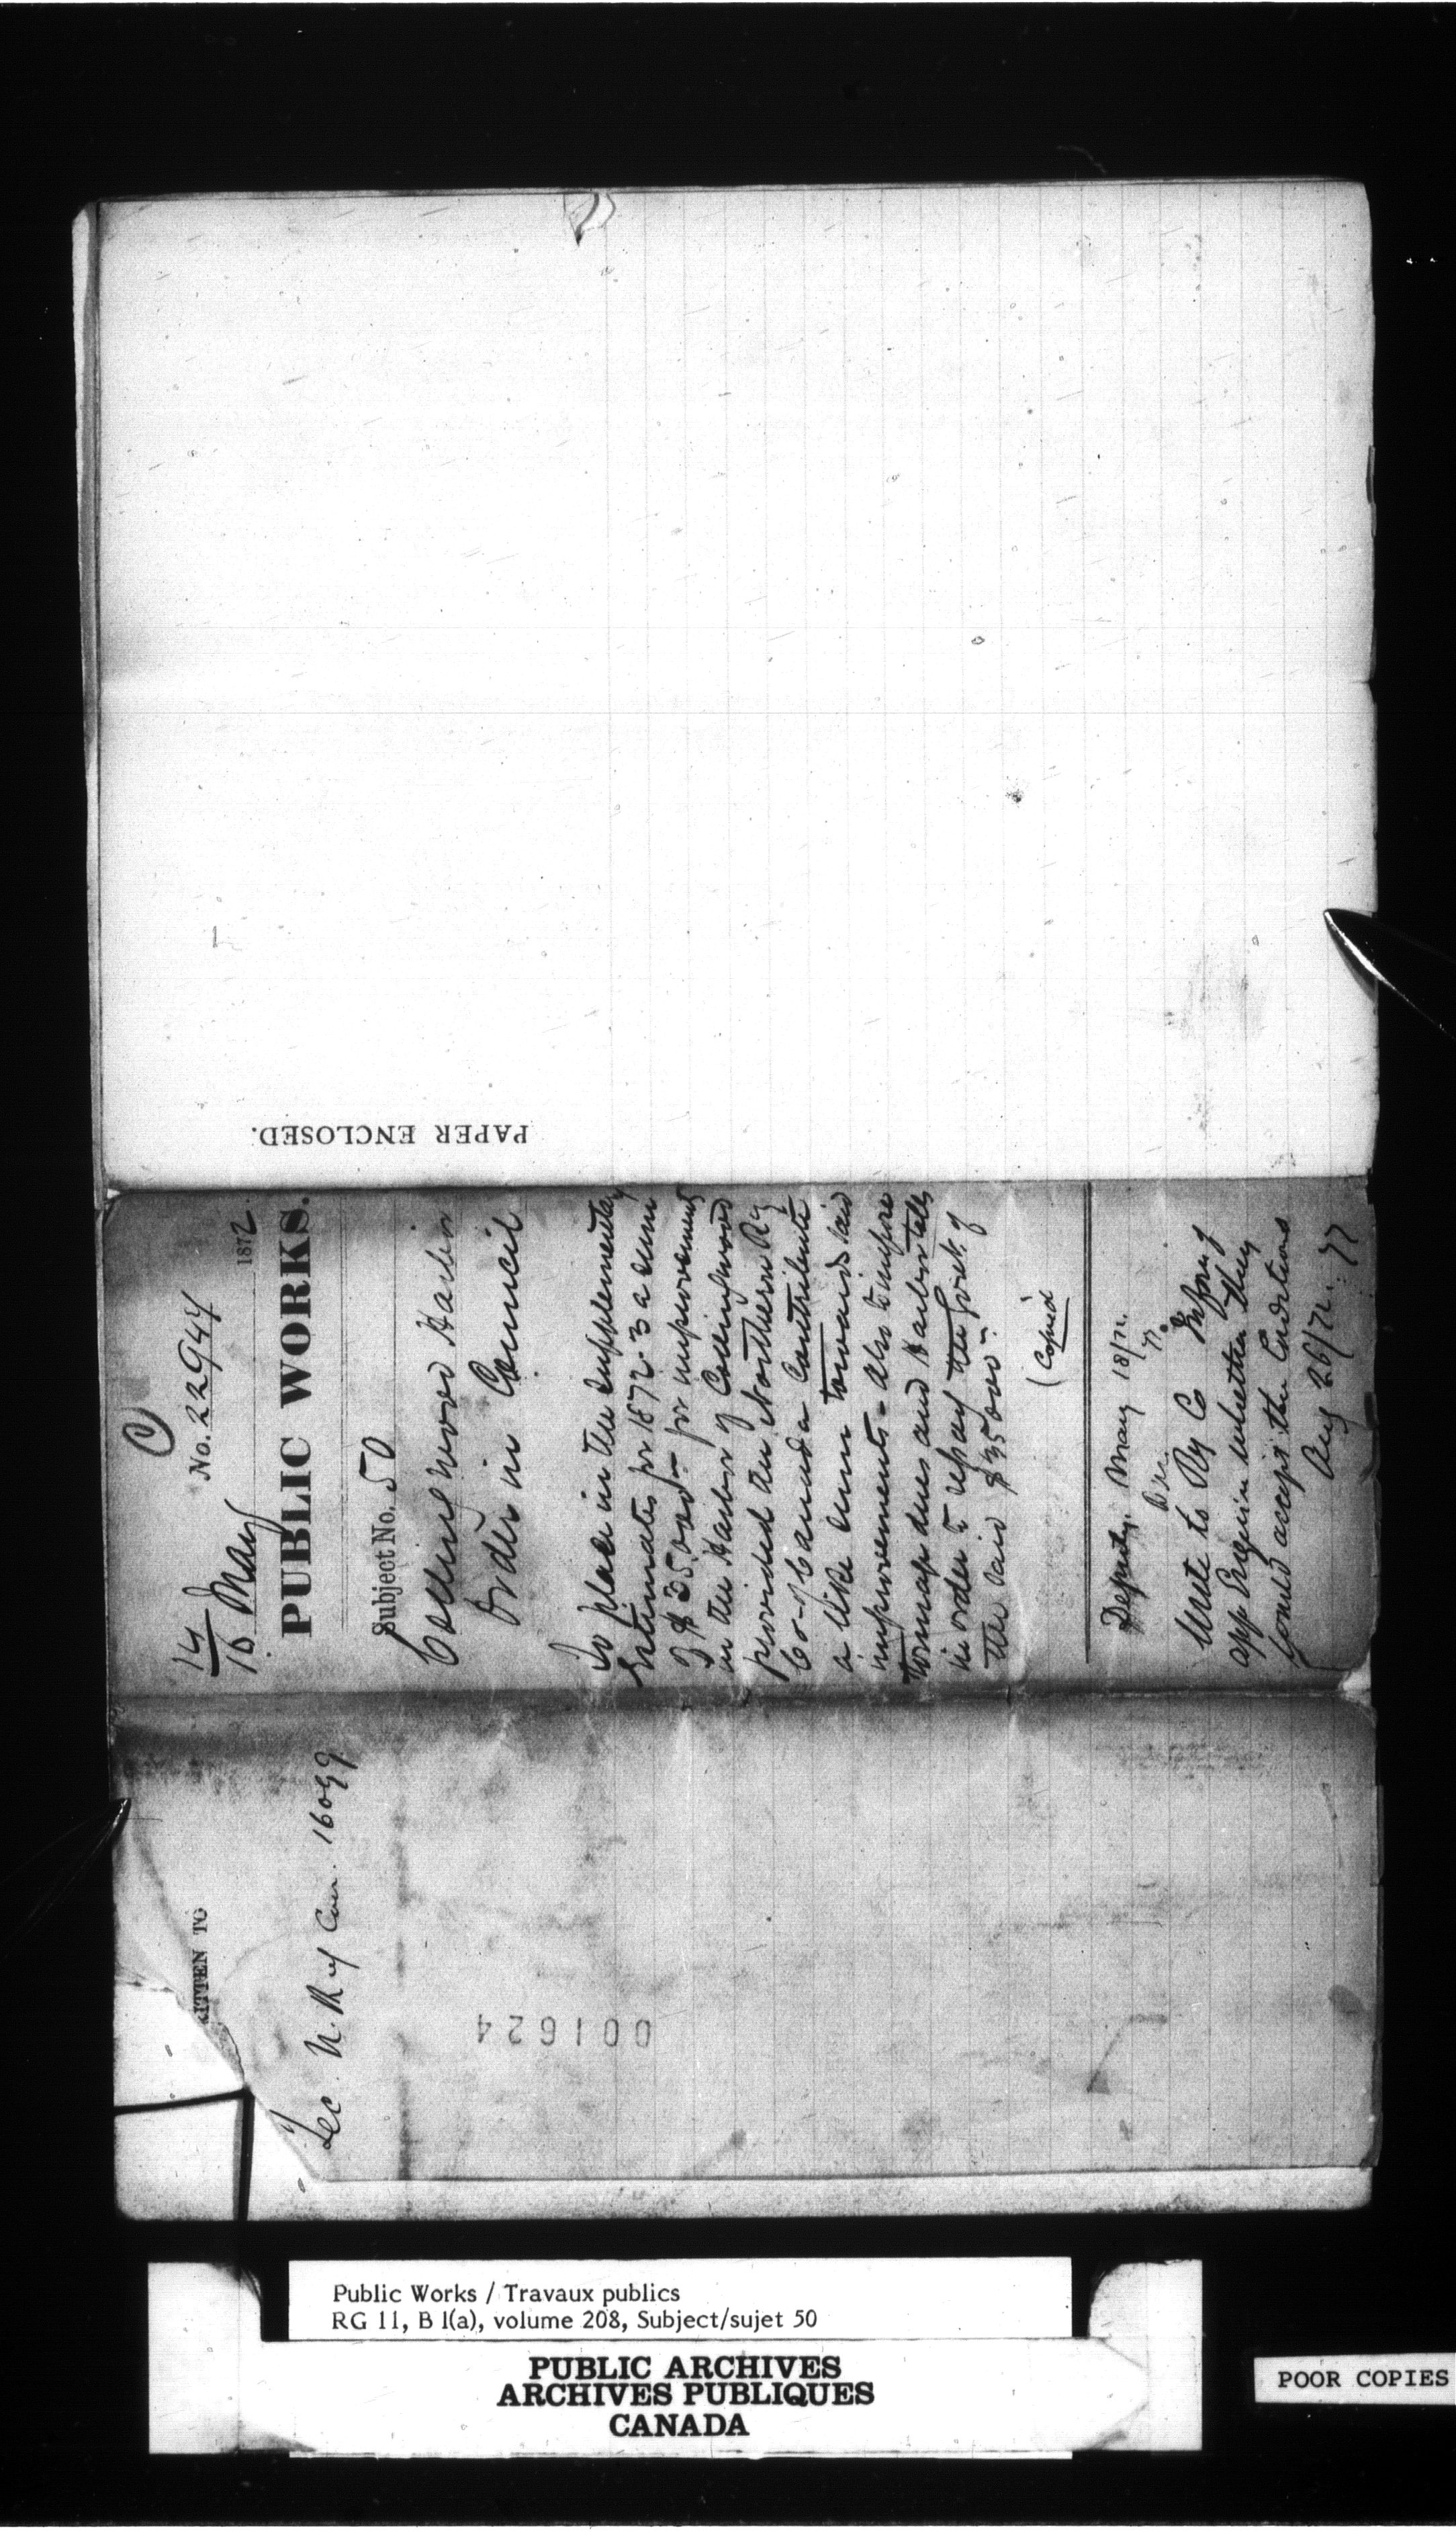 C
No. 22944
14/16 May 1872
PUBLIC WORKS.
Subject No. 50
Collingwood Harbor
Order in Council
To place in the Supplementary
Estimates for 1872-3 a sum
of $35,000 - for improvements
in the Harbor of Collingwood
provided the Northern Ry
Co- of Canada Contribute
a like sum towards said
improvements - also to impose
tonnage dues and Harbor tolls
in order to repay the Govt. of
the said $35000 -
(Copied
Deputy. May 18/72.
Write to Ry Co
whether they
would accept the Conditions
Aug 26/72.
PAPER ENCLOSED.
RITTEN TO
Sec. N. Ry of Can. 16099
001624
Public Works / Travaux publics
RG 11, B 1(a), volume 208, Subject/sujet 50
PUBLIC ARCHIVES
ARCHIVES PUBLIQUES
CANADA
POOR COPIES